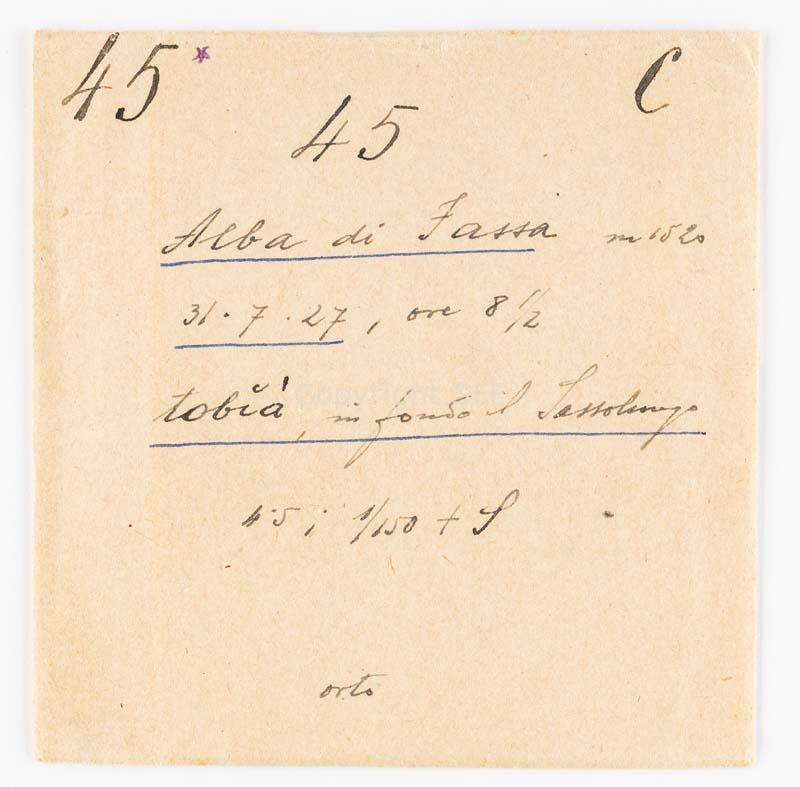 45* C
45
Alba di Fassa m 1520
31.7.27, ore 8 1/2
tobià, in fondo il Sassolungo
4.5; 1/150 + S
orto